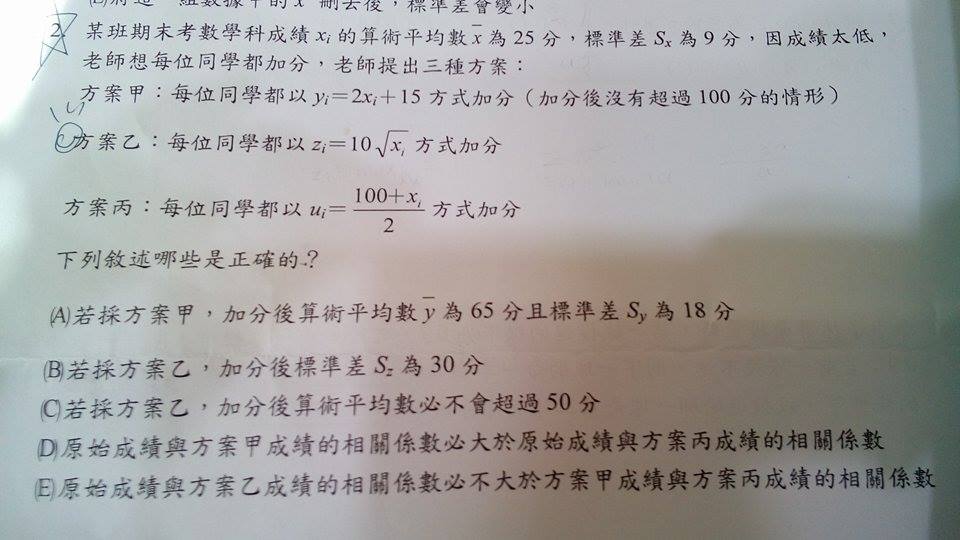 標準差會變小
2. 某班期末考數學科成績 xᵢ 的算術平均數 x̄ 為 25 分，標準差 Sₓ 為 9 分，因成績太低，
老師想每位同學都加分，老師提出三種方案：
方案甲：每位同學都以 yᵢ=2xᵢ+15 方式加分（加分後沒有超過 100 分的情形）
方案乙：每位同學都以 zᵢ=10√xᵢ 方式加分
方案丙：每位同學都以 uᵢ=(100+xᵢ)/2 方式加分
下列敘述哪些是正確的？
(A)若採方案甲，加分後算術平均數 y̅ 為 65 分且標準差 Sy 為 18 分
(B)若採方案乙，加分後標準差 Sz 為 30 分
(C)若採方案乙，加分後算術平均數必不會超過 50 分
(D)原始成績與方案甲成績的相關係數必大於原始成績與方案丙成績的相關係數
(E)原始成績與方案乙成績的相關係數必不大於方案甲成績與方案丙成績的相關係數